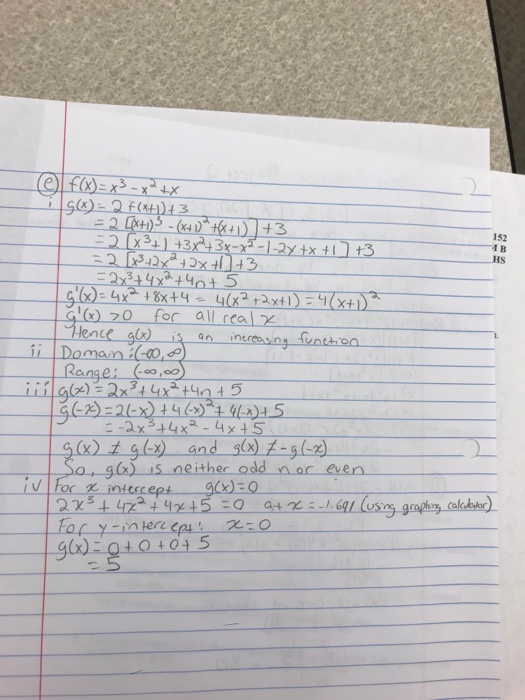 (e) f(x) = x³ - x² + x
i g(x) = 2 f(x+1) + 3
= 2 [(x+1)³ - (x+1)² + (x+1)] + 3
= 2 [x³ + 1 + 3x² + 3x - x² - 1 - 2x + x + 1] + 3
= 2 [x³ + 2x² + 2x + 1] + 3
= 2x³ + 4x² + 4n + 5
g'(x) = 4x² + 8x + 4 = 4(x² + 2x + 1) = 4(x+1)²
g'(x) > 0 for all real x
Hence g(x) is an increasing function
ii Domain: (-∞, ∞)
Range: (-∞, ∞)
iii g(x) = 2x³ + 4x² + 4n + 5
g(-x) = 2(-x) + 4(-x)² + 4(-x) + 5
= -2x³ + 4x² - 4x + 5
g(x) ≠ g(-x) and g(x) ≠ -g(-x)
So, g(x) is neither odd nor even
iv For x intercept g(x) = 0
2x³ + 4x² + 4x + 5 = 0 at x = -1.691 (using graphing calculator)
For y-intercept: x = 0
g(x) = 0 + 0 + 0 + 5
= 5
152
HS